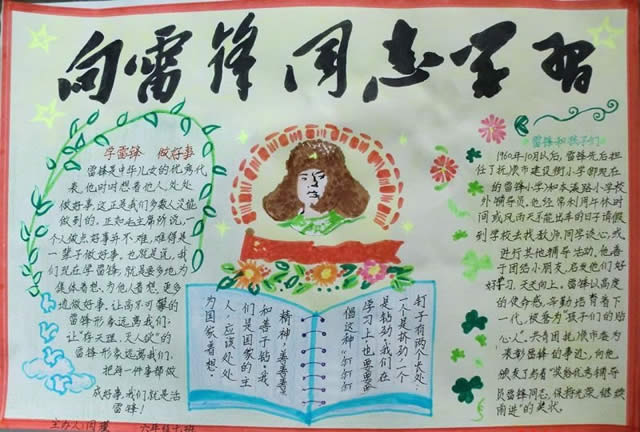 向雷锋同志学习
学雷锋 做好事
雷锋是中华儿女的优秀代
表,他时时想着他人,处处
做好事,这正是我们多数人没能
做到的。正如毛主席所说,一
个人做点好事并不难,难得是一
辈子做好事。也就是说,我
们现在学雷锋,就是要多地为
集体着想,为他人着想,更多
地做好事。让高不可攀的
雷锋形象远离我们;
让“存天理,灭人欲”的
雷锋形象远离我们。
把每一件事都做
成好事,我们就是活
雷锋!
钉子有两个长处
一个是挤劲,一个
是钻劲,我们在
学习上也要
倡这种“钉钉
精神,善善
和善于钻。我
们是国家的主
人,应该处处
为国家着想。
雷锋和孩子们
1960年10月以后,雷锋先后担
任了抚顺市建设街小学(即现在
的雷锋小学)和本溪路小学校
外辅导员,他经常利用午休时
间或风雨天不能出车的日子请假
到学校去找教师、同学谈心,或
进行其他辅导活动。他善
于团结小朋友,启发他们好
好学习,天天向上。雷锋以高度
的使命感,辛勤培育着下
一代,被誉为“孩子们的贴
心人”。共青团抚顺市委为
“表彰雷锋的事迹”,向他
颁发了写着“奖给优秀辅导
员雷锋同志,保持光荣,继续
前进”的奖状。
主办人:闫
六年级七班